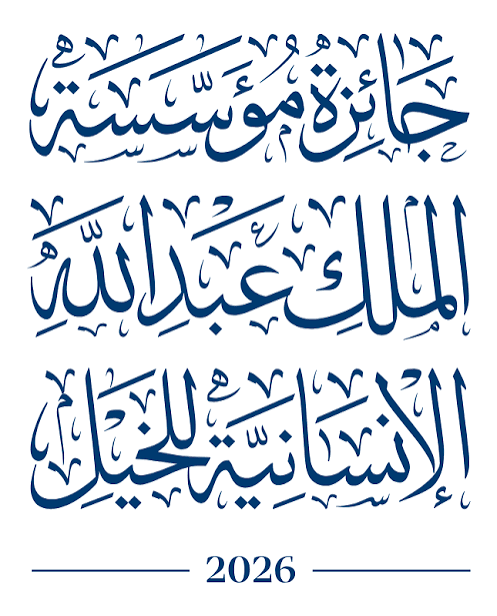 جَائِزَة مُؤَسَّسَة
المَلِكِ عَبْدِاللَّهِ
الإِنْسَانِيَّة للخَيْلِ
2026